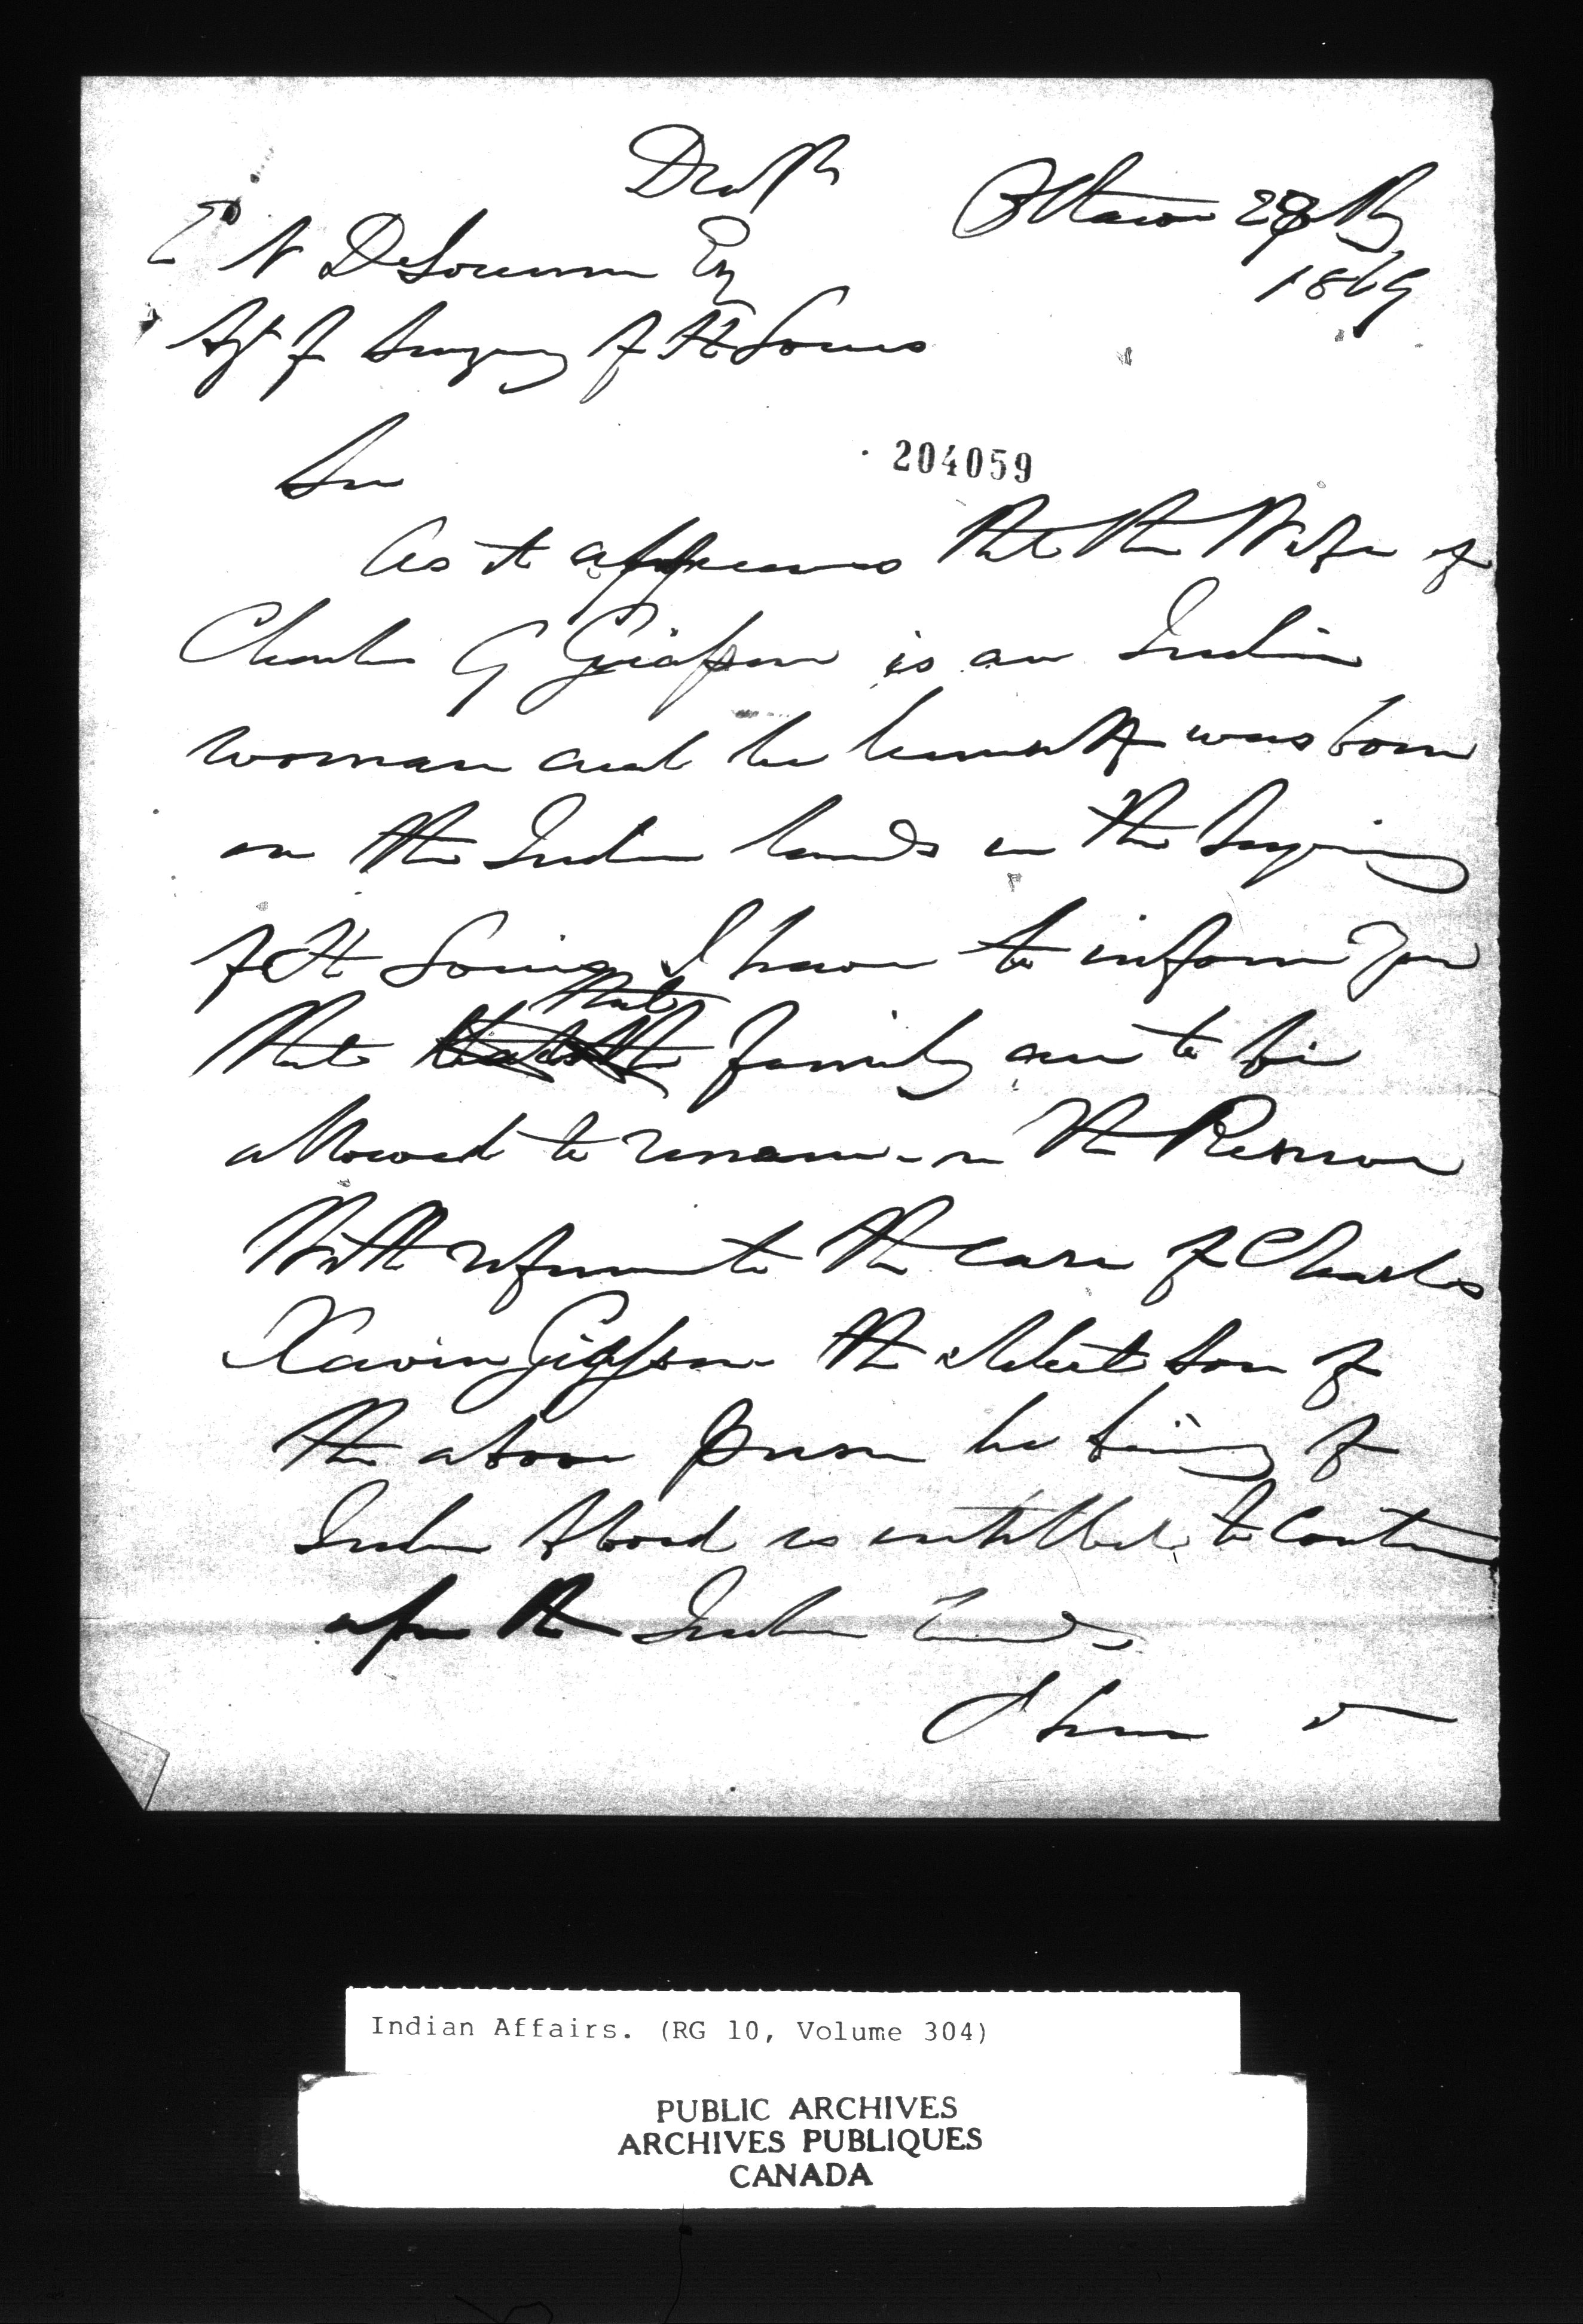 Draft
Ottawa 28 My
1869
E N DeLorimier Esq
Agt of Seigniory of St Louis
Sir
204059
As it appears that the Wife of
Charles G Giasson is an Indian
woman and he himself was born
on the Indian lands in the Seigniory
of St Louis I have to inform you
that
that family are to be
allowed to remain on the Reserve
With reference to the case of Charles
Xavier Giasson the eldest son of
the above person he being of
Indian blood is entitled to continue
upon the Indian lands
I have
Indian Affairs. (RG 10, Volume 304)
PUBLIC ARCHIVES
ARCHIVES PUBLIQUES
CANADA